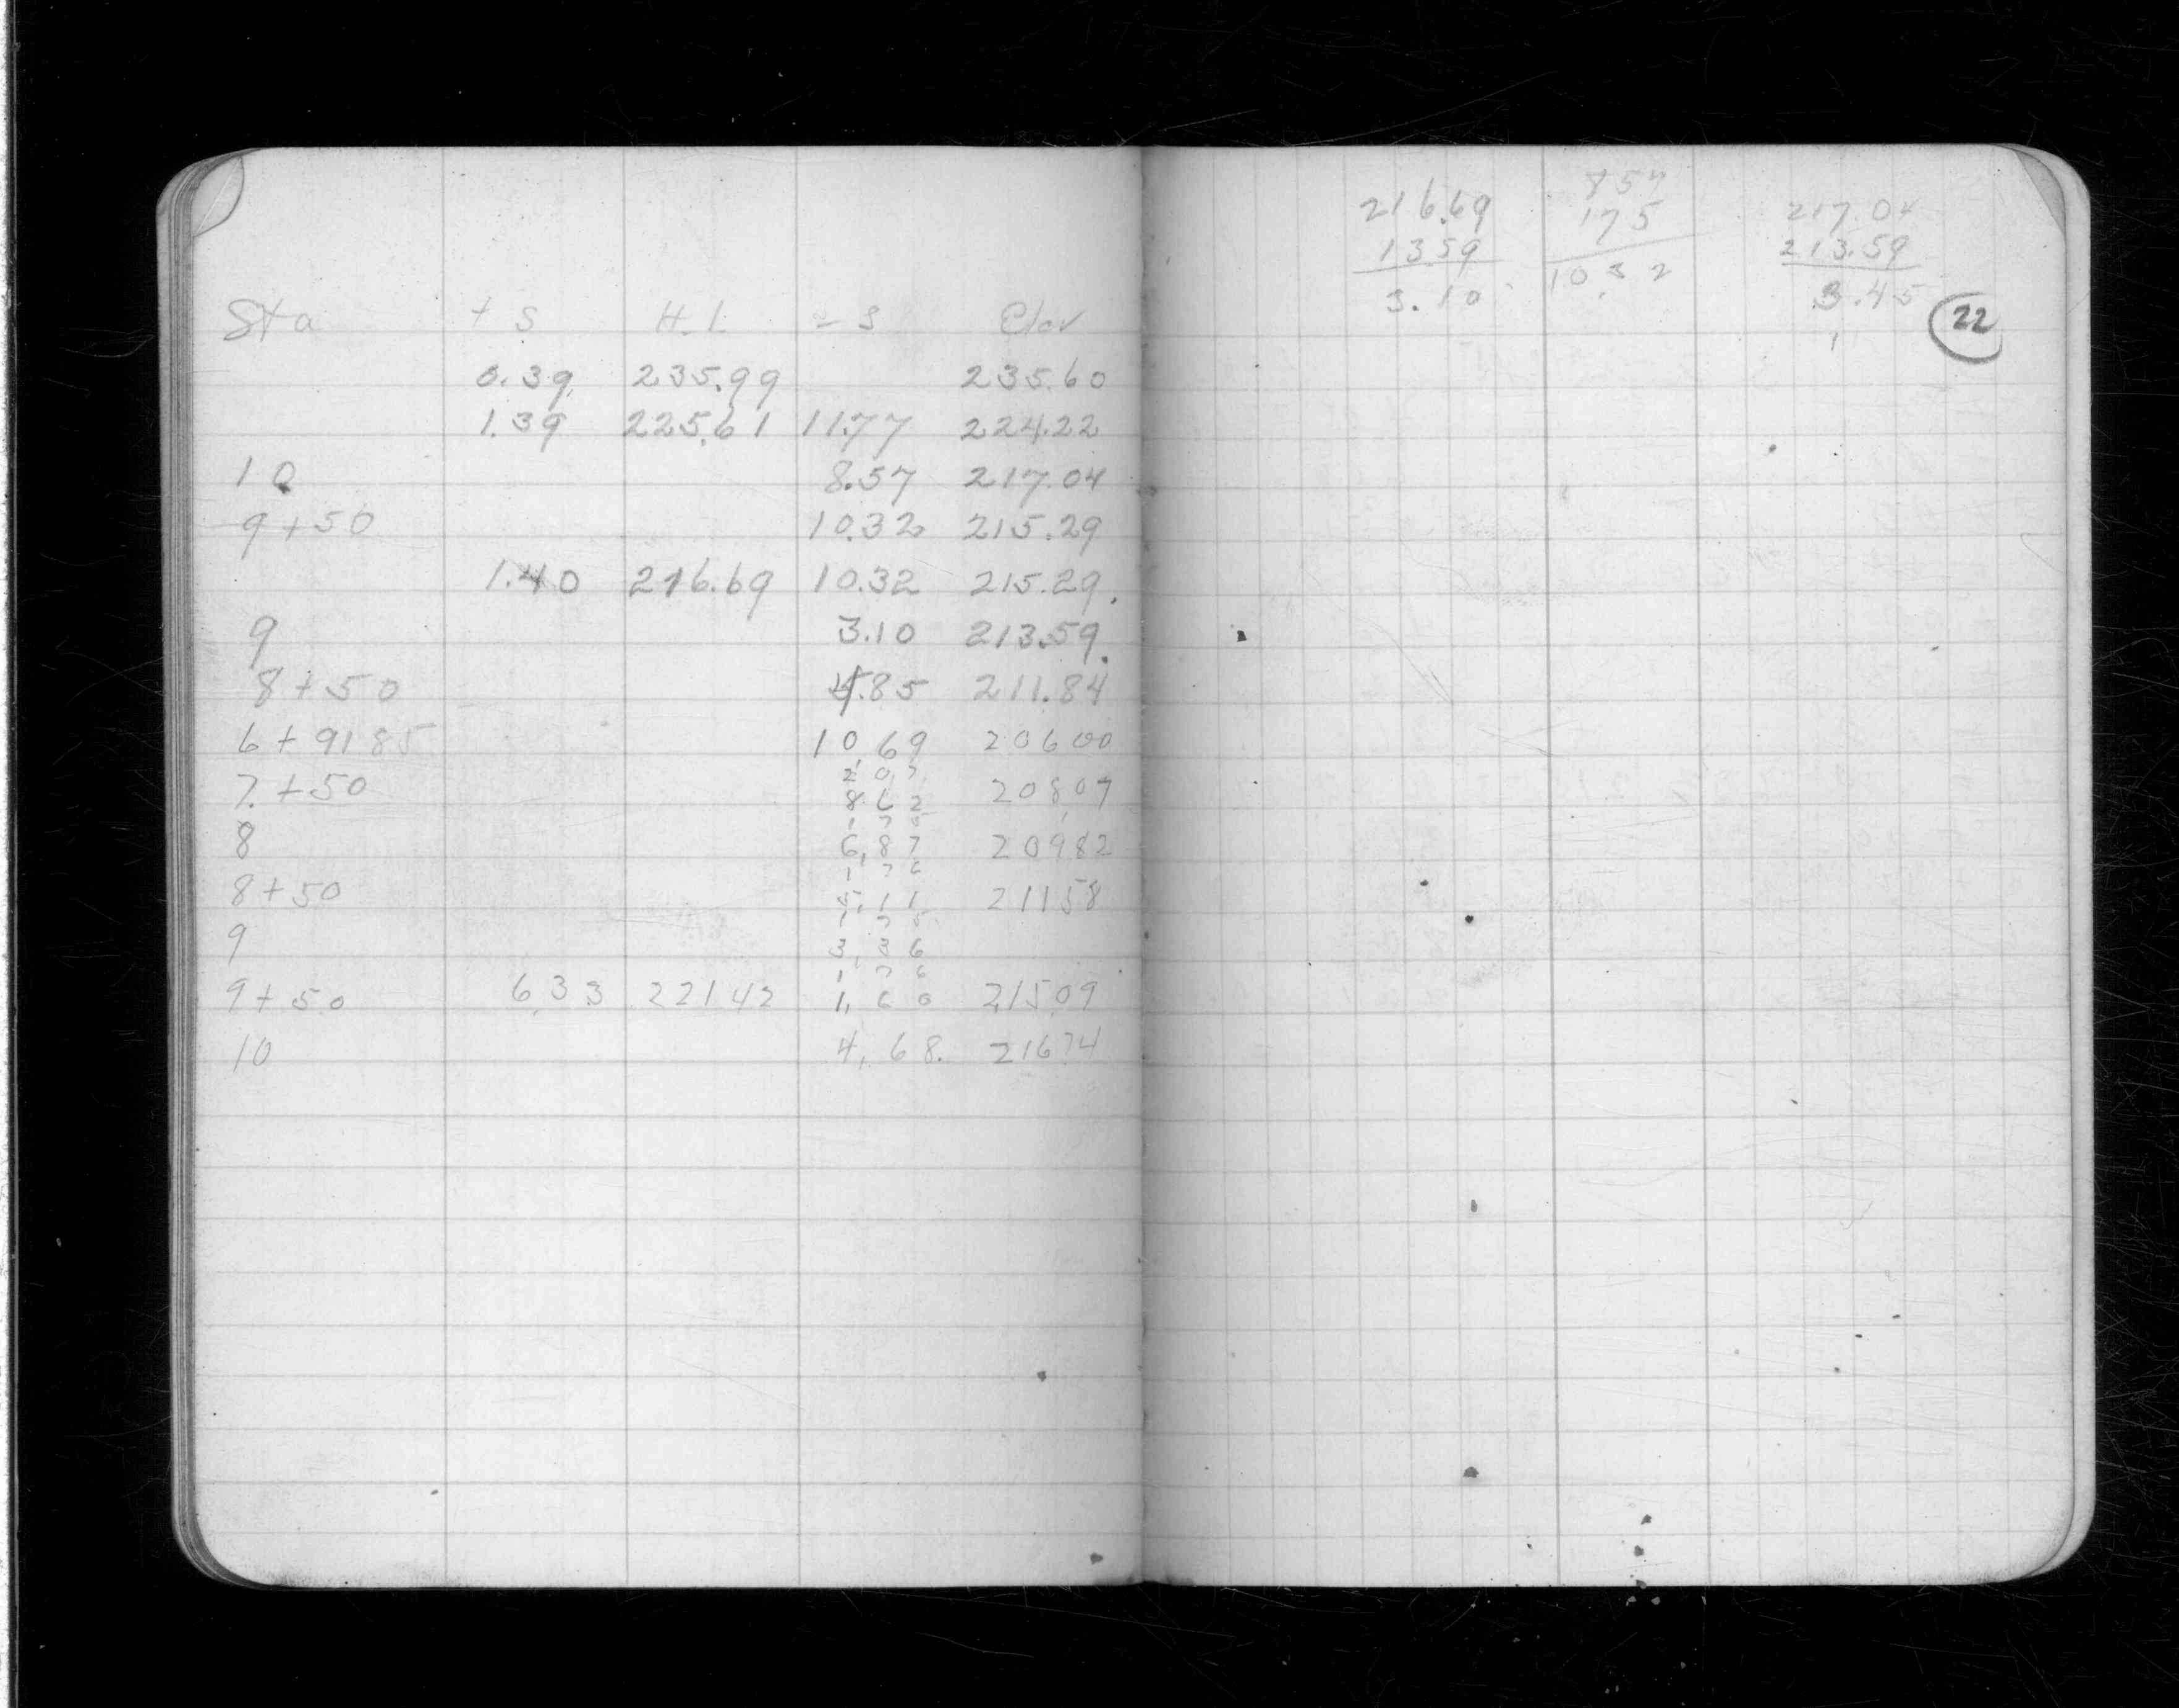 Sta + S H.I. - S Elev
0.39 235.99 235.60
1.39 225.61 11.77 224.22
10 8.57 217.04
9+50 10.32 215.29
1.40 216.69 10.32 215.29
9 3.10 213.59
8+50 4.85 211.84
6+9185 10,69 20600
2 07
7+50 8 62 208,07
1 75
8 6,87 20982
1 76
8+50 5,11 21158
1 75
9 3,36
1 76
9+50 6,33 22142 1,60 21509
10 4,68. 21674
216.69
1359
3.10
857
175
10.32
217.04
213.59
3.45
22